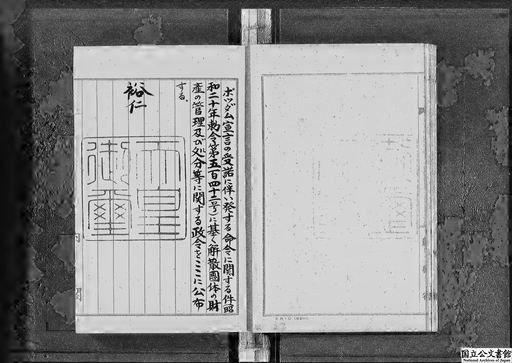 ポツダム宣言の受諾に伴い発する命令に関する件(昭
和二十年勅令第五百四十二号)に基く解散団体の財
産の管理及び処分等に関する政令をここに公布
する。
裕仁
天皇
御璽
国立公文書館
National Archives of Japan